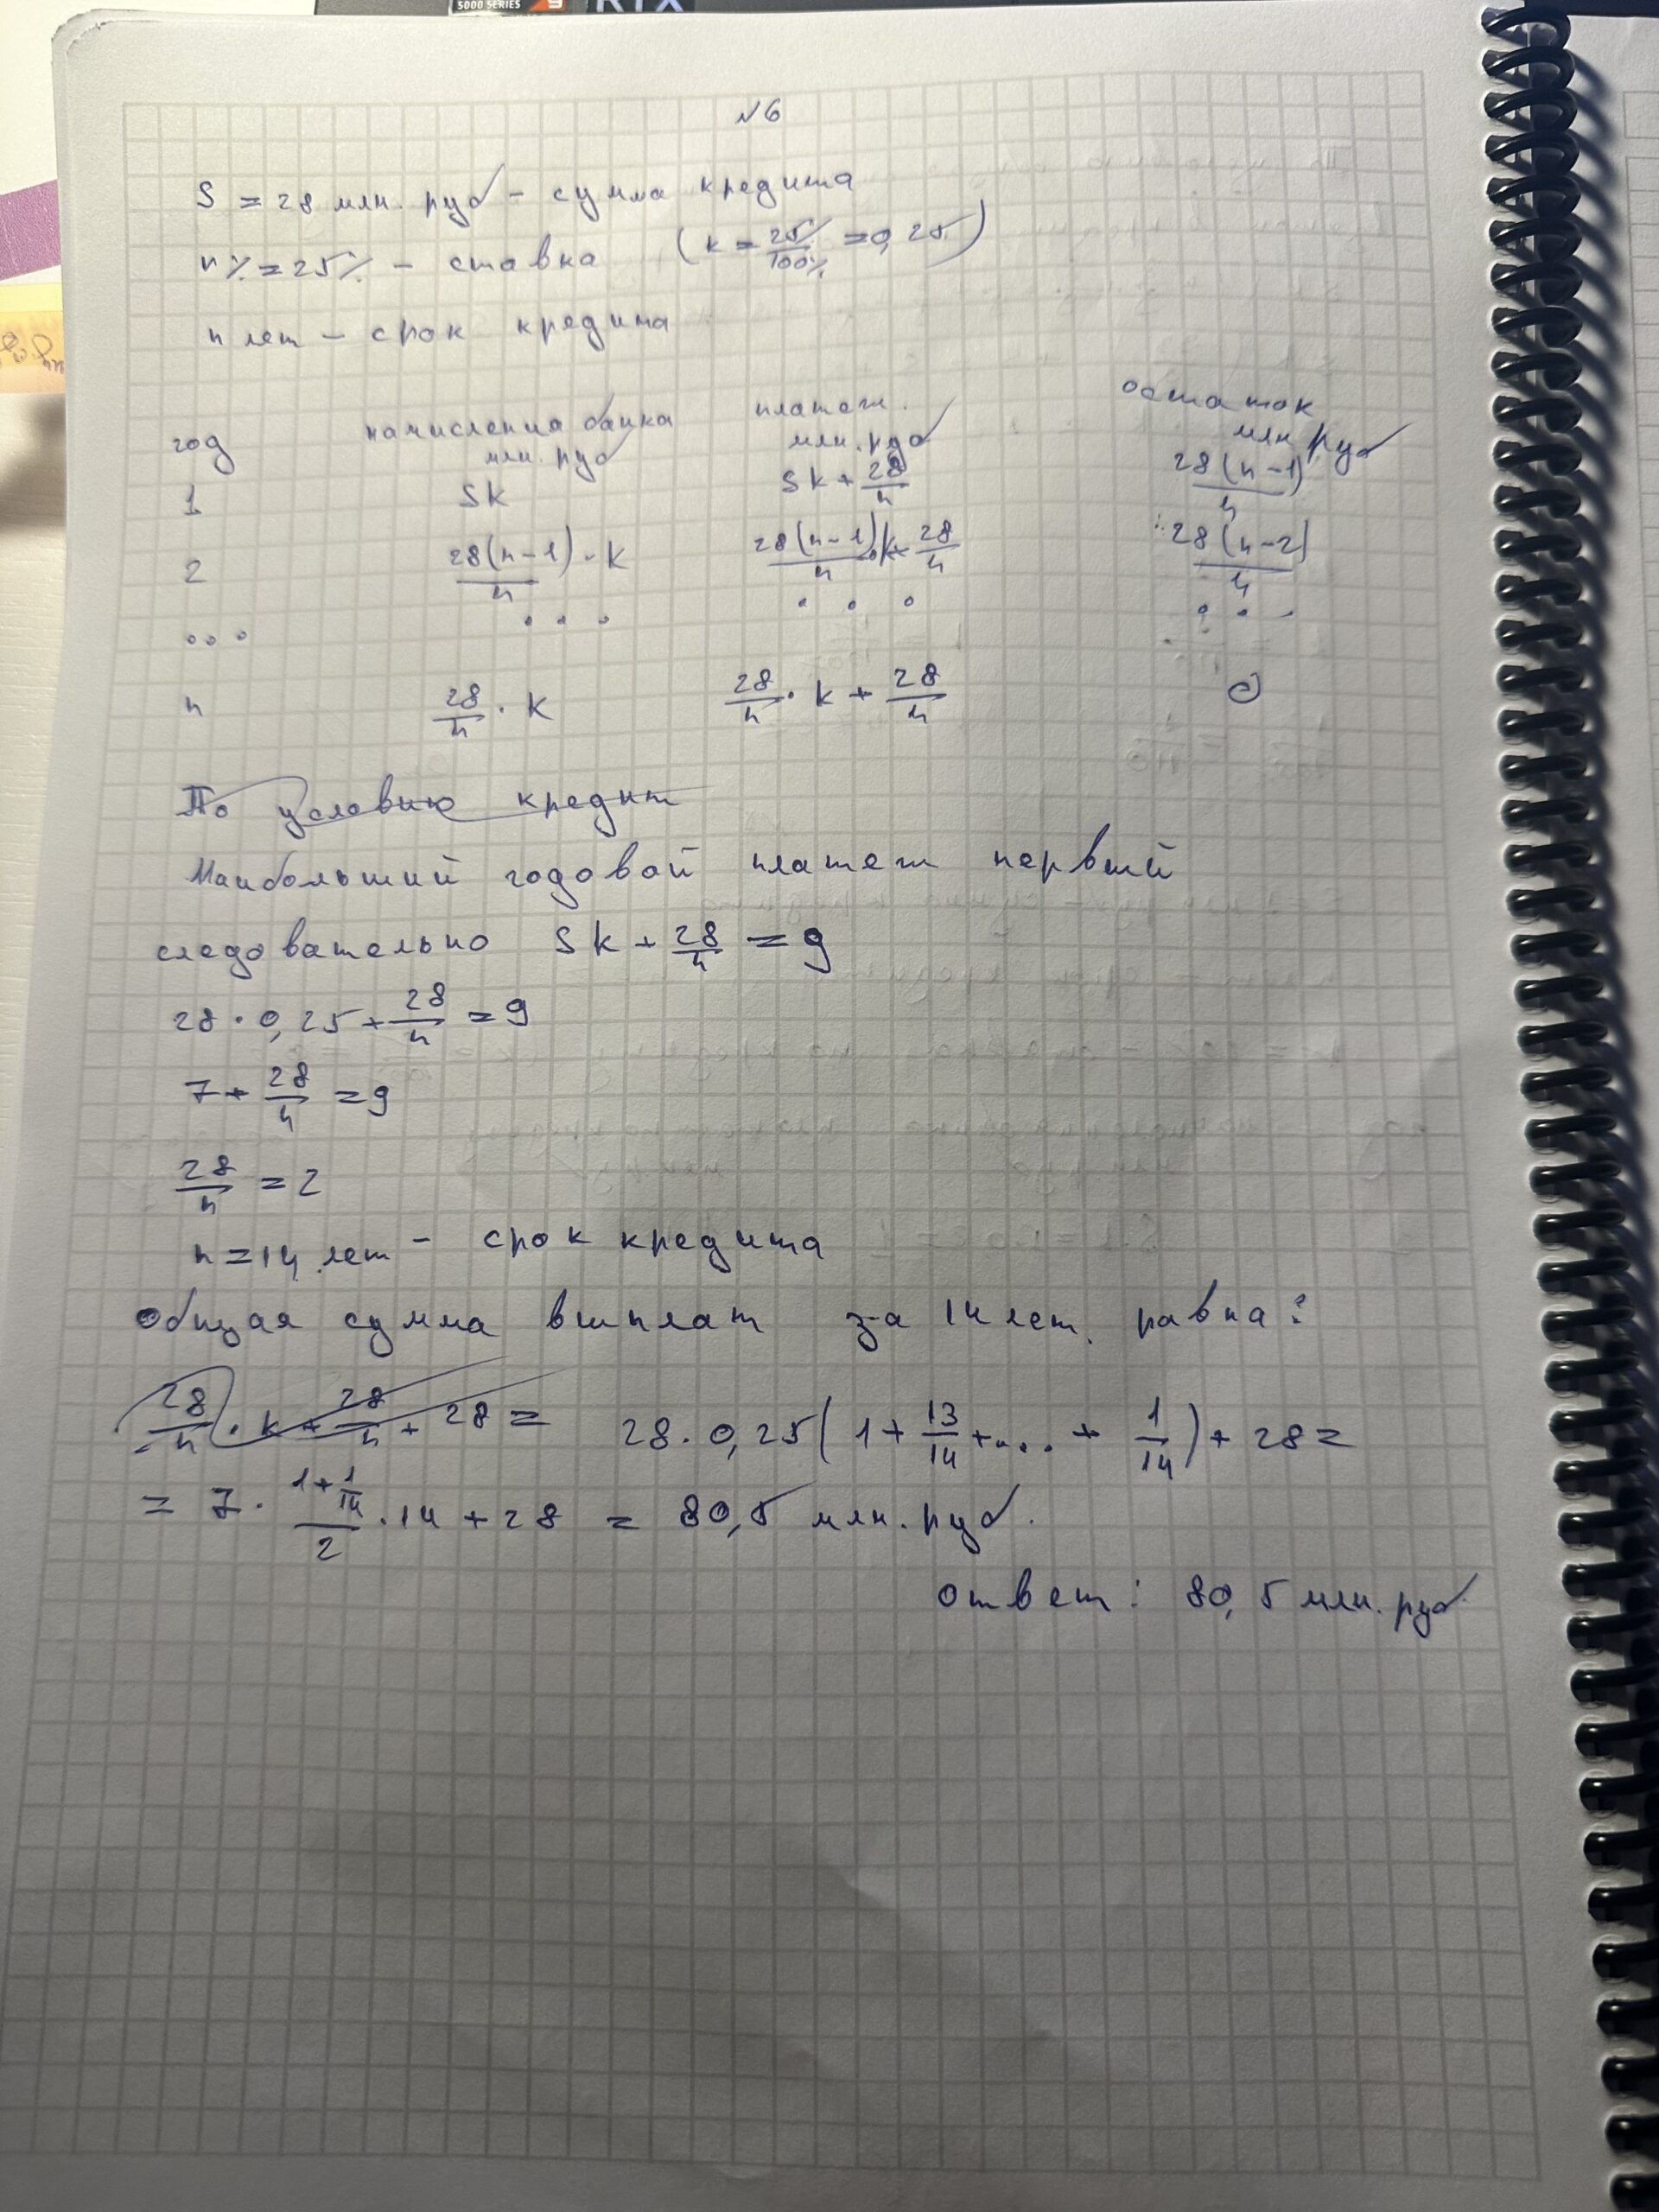 5000 SERIES 9 RTX
№6
S = 28 млн. руб – сумма кредита
r% = 25% – ставка (k = 25%/100% = 0,25)
n лет – срок кредита
год начисления банка млн. руб платеж. млн. руб остаток млн руб
1 Sk Sk + 28/n 28(n-1)/n
2 28(n-1)/n · k 28(n-1)/n · k + 28/n 28(n-2)/n
... ... ... ...
n 28/n · k 28/n · k + 28/n 0
По условию кредит
Наибольший годовой платеж первый
следовательно Sk + 28/n = 9
28 · 0,25 + 28/n = 9
7 + 28/n = 9
28/n = 2
n = 14 лет – срок кредита
общая сумма выплат за 14 лет. равна:
28/n · k + 28/n + 28 = 28 · 0,25(1 + 13/14 + ... + 1/14) + 28 =
= 7 · (1 + 1/14)/2 · 14 + 28 = 80,5 млн. руб.
ответ: 80,5 млн. руб